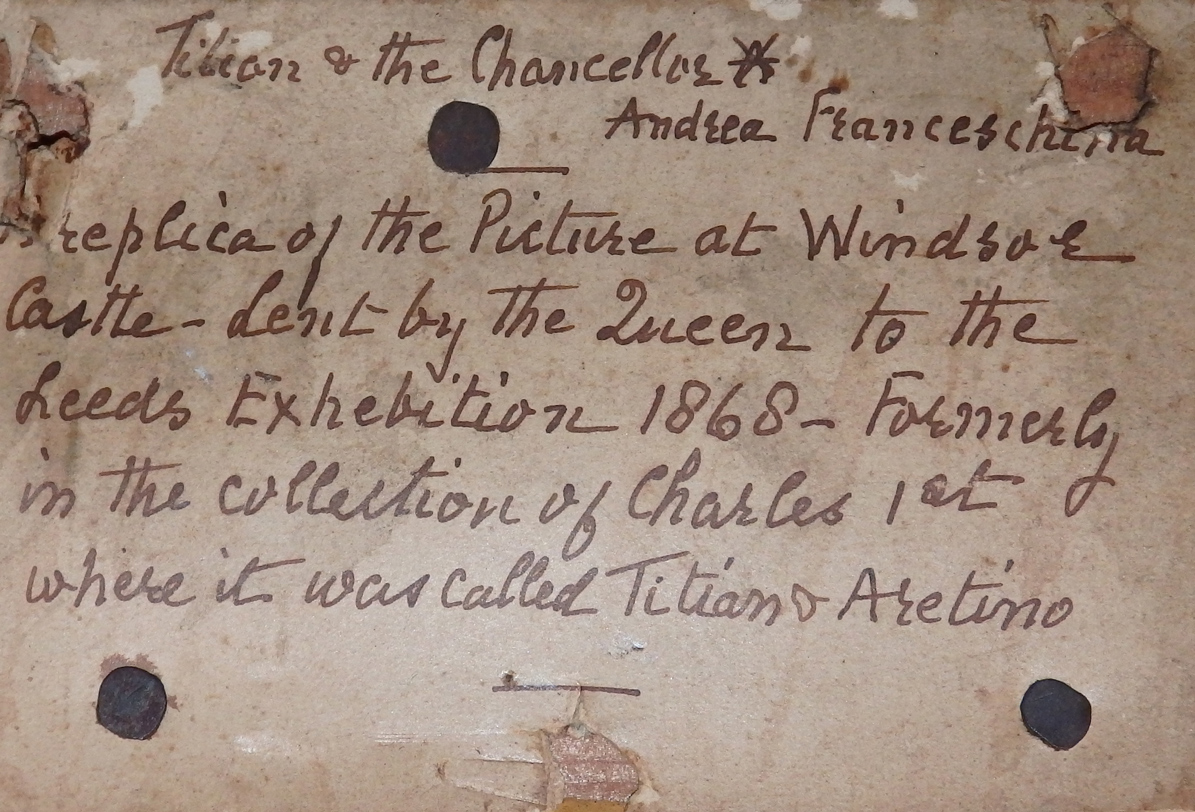 Titian & the Chancellor
Andrea Franceschina
A replica of the Picture at Windsor
Castle - Lent by the Queen to the
Leeds Exhebition 1868 - Formerly
in the collection of Charles 1st
where it was called Titian & Aretino